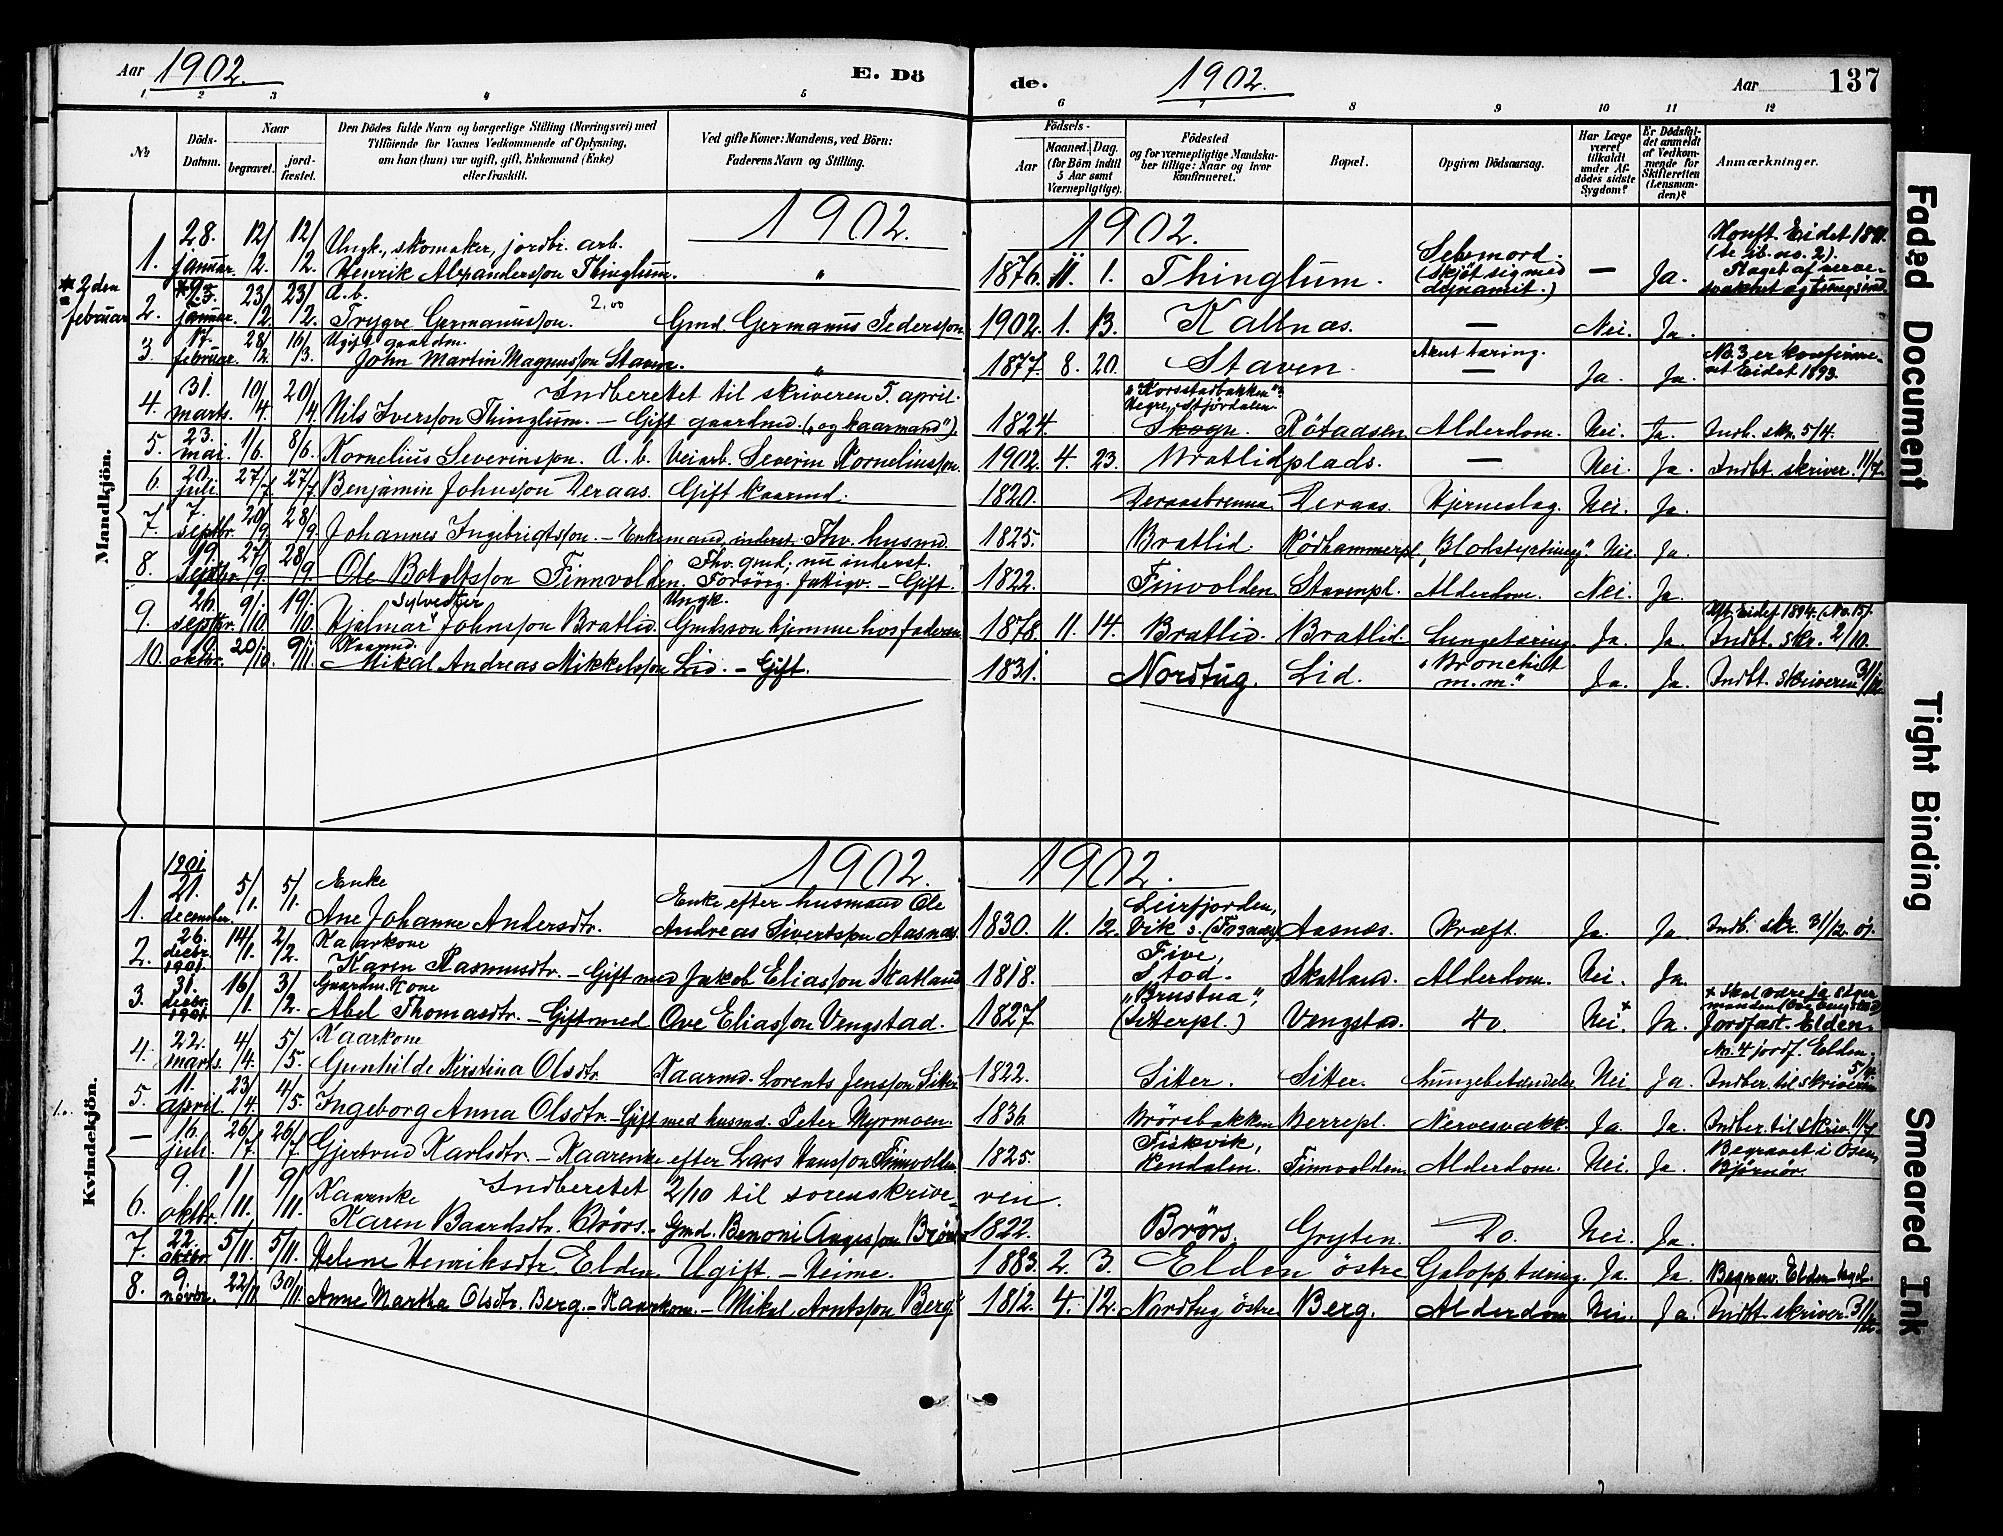 Aar 1902. E. Dö de. 1902. Aar 137
1 2 3 4 5 6 8 9 10 11 12
№
Döds-Datum.
Naar
begravet. jordfæstet.
Den Dödes fulde Navn og borgerlige Stilling (Næringsvei) med
Tilföiende for Voxnes Vedkommende af Oplysning,
om han (hun) var ugift, gift, Enkemand (Enke)
eller fraskilt.
Ved gifte Koner: Mandens, ved Börn:
Faderens Navn og Stilling.
Födsels-
Aar Maaned. Dag.
(for Börn indtil
5 Aar samt
Værnepligtige).
Födested
og for værnepligtige Mandska-
ber tillige: Naar og hvor
konfirmeret.
Bopæl.
Opgiven Dödsaarsag.
Har Læge
været
tilkaldt
under Af-
dödes sidste
Sygdom?
Er Dödsfal-
det anmeldt
af Vedkom-
mende for
Skifteretten
(Lensman-
den)?
Anmærkninger.
Mandkjön.
1902. 1902.
1. 28. januar. 12/2. 12/2. Ungk., skomaker, jordbr. arb.
Henrik Alexandersson Thinglum. " 1876. 11. 1. Thinglum. Selvmord. (skjöt sig med dynamit.) — Ja. Konft. Eidet 1891.
(se no. 2).
* 2 den februar
2. januar. 23/2. 23/2. A. b.
Trygve Germanusson. 2,00 Gmd. Germanus Pedersson. 1902. 1. 13. Kaltnæs. — Nei. Ja.
3. 17. februar. 28/2. 16/3. Ugift gaardm.
John Martin Magnusson Staven. " 1877. 8. 20. Staven. Akut tæring. — Ja. Ja. No. 3 er konfirmeret Eidet 1893.
Indberettet til skriveren 5. april.
4. 31. marts. 10/4 20/4 Nils Iversson Thinglum. — Gift gaardmd. („og kaarmand"). 1824. "Korsstadbakken"? Hegre, Stjördalen. Skogn. Rötaasen. Alderdom. Nei. Ja. Indb. skr. 5/4.
5. 23. mai. 1/6. 8/6. Kornelius Severinsson. A. b. Veiarb. Severin Korneliusson. 1902. 4. 23. Bratlidplads. — Nei. Ja. Indbt. skriver. 11/7.
6. 20. juli. 27/7 27/7 Benjamin Johnsson Deraas. Gift kaarmd. 1820. Deraasbrenna. Deraas. Hjerneslag. Nei. Ja.
7. 7. septbr. 20/9 28/9 Johannes Ingebrigtsson. — Enkemand, inderst. Fhv. husmd. 1825. Bratlid. Rödhammerpl. "Blodstyrtning". Nei. Ja.
8. 19. septbr. 27/9. 28/9. Ole Bokoltsson Finnvolden. Fhv. gmd; nu inderst. Forsörg. fattigv. — Gift. 1822. Finvolden. Stavenpl. Alderdom. Nei. Ja.
9. 26. septbr. 9/10. 19/10. Sylvester
Hjalmar Johnsson Bratlid. Ungk. Gmdssön hjemme hos faderen. 1878. 11. 14. Bratlid. Bratlid. Lungetæring. Ja. Ja. Kft. Eidet 1894. (No. 15). Indbt. skr. 2/10.
10. oktbr. 20/10. 9/11 Kaarmd.
Mikal Andreas Mikkelsson Lid. — Gift. 1831. Nordtug. Lid. "Bronchit m.m." Ja. Ja. Indbt. skriveren
Kvindekjön.
1902. 1902.
1. 1901 21. december. 5/1. 5/1. Enke
Ane Johanne Andersdtr. Enke efter husmand Ole Andreas Sivertsson Aasnæs. 1830. 11. 12. Leirfjorden, Vik s. Aasnæs. Kræft. Ja. Ja. Indb. skr. 31/12. 01.
2. 26. decbr. 1901. 14/1. 2/2. Kaarkone
Karen Rasmusdtr. — Gift med Jakob Eliasson Skatland 1818. Five, Stod. Skatland. Alderdom. Nei. Ja.
3. 31. decbr. 1901 16/1. 3/2. Gaardm. Kone
Abel Thomasdtr. — Gift med Ove Eliasson Vengstad. 1827. "Brustua", (Sitterpl.) Vengstad. do. Nei + Ja. + Skal være ja siger manden (Ove Vengstad) Jordfæst. Elden.
4. 22. marts. 4/4. 5/5. Kaarkone
Gunhilde Kirstina Olsdtr. Kaarmd. Lorents Jensson Sitter 1822. Sitter. Sitter. Lungebetændelse Nei Ja No. 4 jordf. Elden. 5/5. Indber. til skriveren
5. 11. april. 23/4. 4/5. Ingeborg Anna Olsdtr. — Gift med husmd. Peter Myrmoen. 1836. Brörsbakken Berrepl. Nervesvækk. Ja. Ja. Indber. til skriv. 11/7
— 16. juli. 26/7. 26/7. Gjertrud Karlsdtr. — Kaarenke efter Lars Hansson Finnvolden. 1825. Fiskvik, Rendalen. Finnvolden. Alderdom. Nei. Ja. Begravet i Osen, Björnör.
Indberettet 2/10 til sorenskriveren.
6. 9. oktbr. 1/11. 9/11. Kaarenke
Karen Baardsdtr. Brörs. — Gmd. Benoni Aagesson Brörs 1822. Brörs. Gryten. Do. Nei. Ja.
7. 22. oktbr. 5/11. 5/11. Helene Henriksdtr. Elden. Ugift. — Heime. 1883. 2. 3. Elden östre Galopptæring. Ja. Ja. Begrav. Elden
8. 9. novbr. 22/11 30/11 Anne Martha Olsdtr. Berg. — Kaarkone. — Mikal Arntsson Berg. 1812. 4. 12. Nordtug östre Berg. Alderdom Nei. Ja. Indbt. skriver.
Faded Document
Tight Binding
Smeared Ink